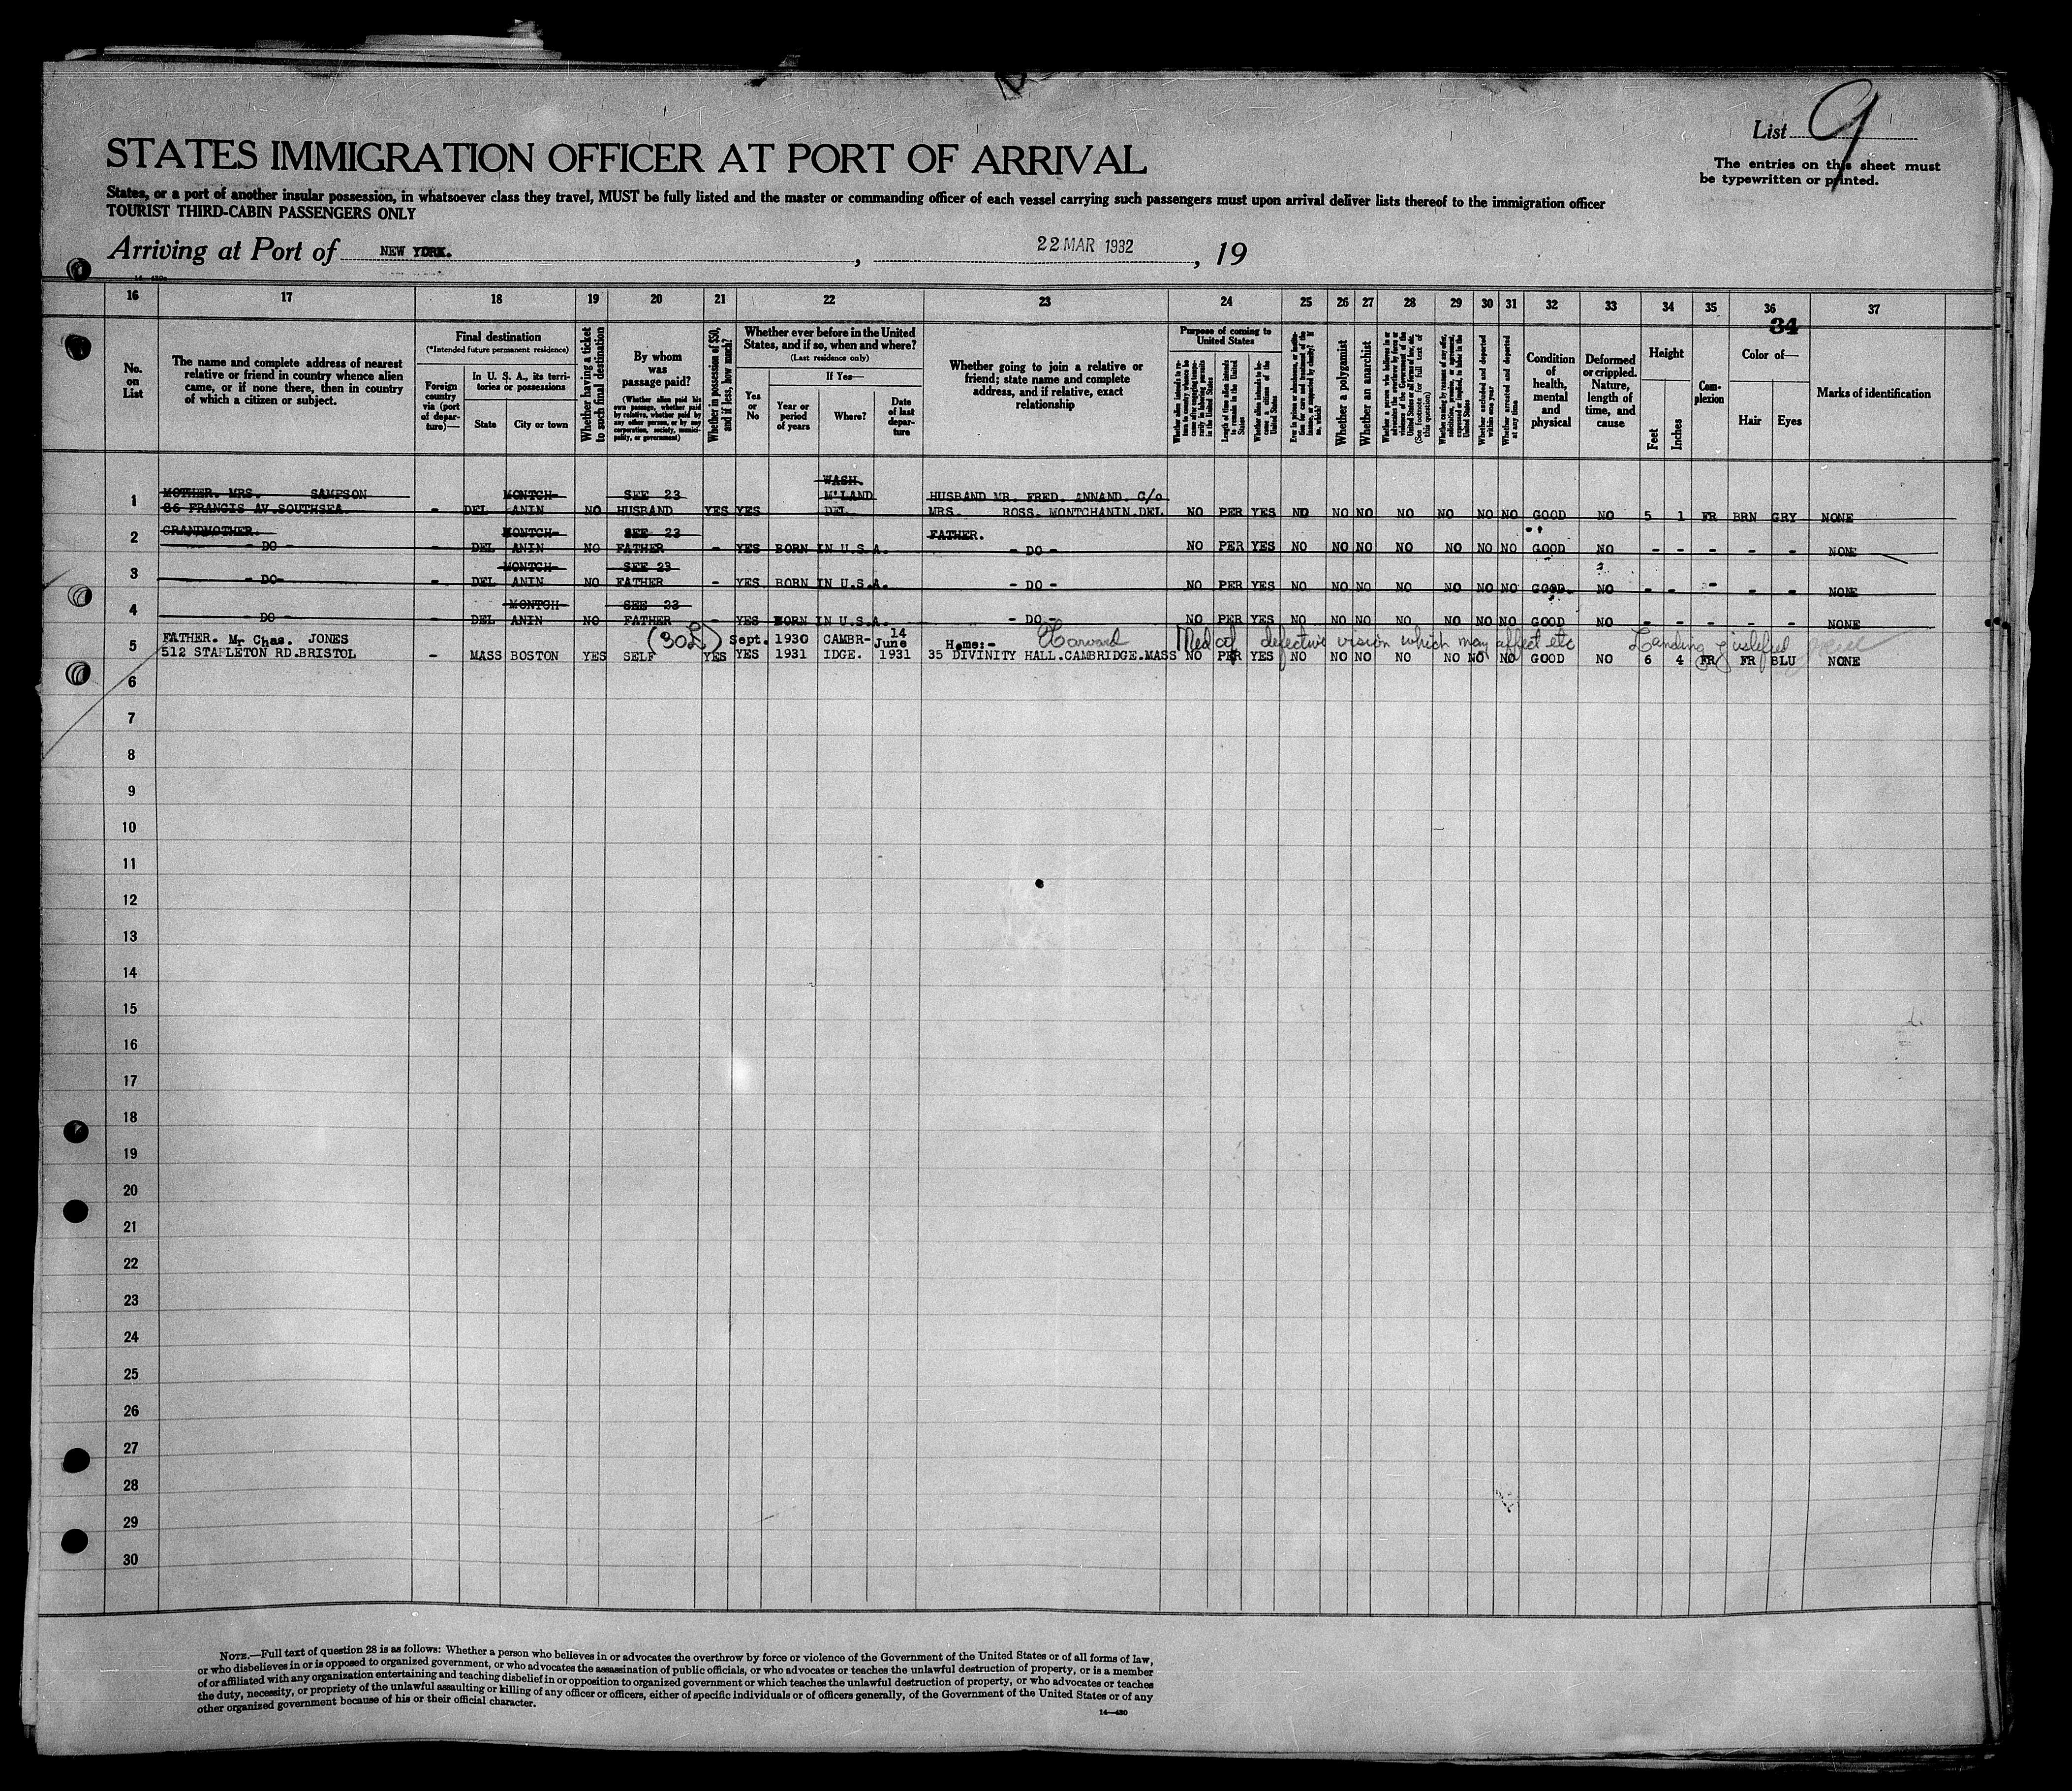 List 9
STATES IMMIGRATION OFFICER AT PORT OF ARRIVAL
The entries on this sheet must
be typewritten or printed.
States, or a port of another insular possession, in whatsoever class they travel, MUST be fully listed and the master or commanding officer of each vessel carrying such passengers must upon arrival deliver lists thereof to the immigration officer
TOURIST THIRD-CABIN PASSENGERS ONLY
Arriving at Port of NEW YORK. , 22 MAR 1932 , 19
14—430a
16 17 18 19 20 21 22 23 24 25 26 27 28 29 30 31 32 33 34 35 36 37
34
No. on List
The name and complete address of nearest
relative or friend in country whence alien
came, or if none there, then in country
of which a citizen or subject.
Final destination
(*Intended future permanent residence)
Foreign country via (port of departure)—
In U. S. A., its territories or possessions
State
City or town
Whether having a ticket to such final destination
By whom was passage paid?
(Whether alien paid his own passage, whether paid by relative, whether paid by any other person, or by any corporation, society, municipality, or government)
Whether in possession of $50, and if less, how much?
Whether ever before in the United
States, and if so, when and where?
(Last residence only)
Yes or No
If Yes—
Year or period of years
Where?
Date of last departure
Whether going to join a relative or
friend; state name and complete
address, and if relative, exact
relationship
Purpose of coming to United States
Length of time alien intends to remain in the United States
Whether alien intends to become a citizen of the United States
Whether a polygamist
Whether an anarchist
Whether excluded and deported within one year
Whether arrested and deported at any time
Condition of health, mental and physical
Deformed or crippled. Nature, length of time, and cause
Height
Feet
Inches
Complexion
Color of—
Hair
Eyes
Marks of identification
WASH.
1 MOTHER. MRS. SAMPSON MONTCH- SEE 23 M'LAND HUSBAND MR. FRED. ANNAND. C/o
86 FRANCIS AV.SOUTHSEA. - DEL ANIN NO HUSBAND YES YES DEL MRS. ROSS. MONTCHANIN.DEL NO PER YES NO NO NO NO NO NO NO GOOD NO 5 1 FR BRN GRY NONE
2 GRANDMOTHER. MONTCH- SEE 23 FATHER.
- DO - - DEL ANIN NO FATHER - YES BORN IN U.S.A. - DO - NO PER YES NO NO NO NO NO NO NO GOOD NO - - - - - NONE
3 MONTCH- SEE 23
- DO- - DEL ANIN NO FATHER - YES BORN IN U.S.A. - DO - NO PER YES NO NO NO NO NO NO NO GOOD. NO - - - - - NONE
4 MONTCH- SEE 23
DO - - DEL ANIN NO FATHER - YES BORN IN U.S.A. - DO - NO PER YES NO NO NO NO NO NO NO GOOD NO - - - - - NONE
5 FATHER. Mr Chas. JONES (30£) Sept. 1930 CAMBR- 14 June Home:- Harvard Med cf defective vision which may affect etc Landing justified
512 STAPLETON RD.BRISTOL - MASS BOSTON YES SELF YES YES 1931 IDGE. 1931 35 DIVINITY HALL.CAMBRIDGE.MASS NO PER YES NO NO NO NO NO NO NO GOOD NO 6 4 FR FR BLU NONE
6
7
8
9
10
11
12
13
14
15
16
17
18
19
20
21
22
23
24
25
26
27
28
29
30
NOTE.—Full text of question 28 is as follows: Whether a person who believes in or advocates the overthrow by force or violence of the Government of the United States or of all forms of law,
or who disbelieves in or is opposed to organized government, or who advocates the assassination of public officials, or who advocates or teaches the unlawful destruction of property, or is a member
of or affiliated with any organization entertaining and teaching disbelief in or opposition to organized government or which teaches the unlawful destruction of property, or who advocates or teaches
the duty, necessity, or propriety of the unlawful assaulting or killing of any officer or officers, either of specific individuals or of officers generally, of the Government of the United States or of any
other organized government because of his or their official character.
14—430